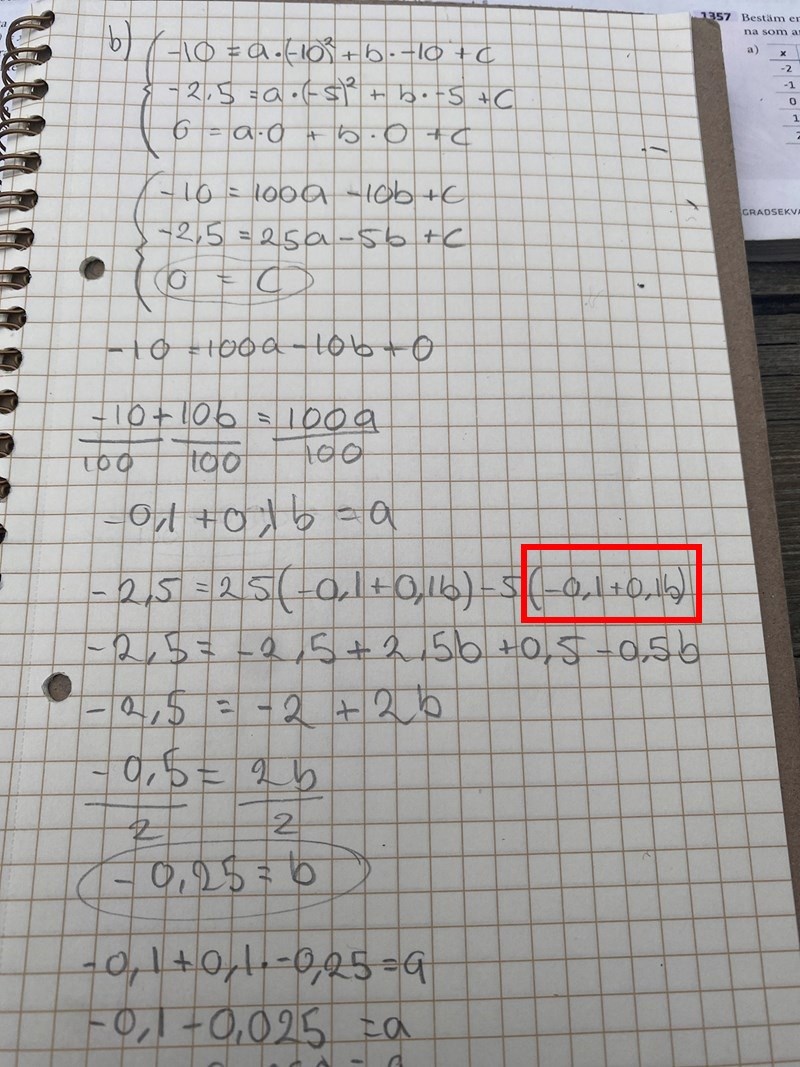 1357 Bestäm en
na som a
a) x
-2
-1
0
1
GRADSEKVA
b) -10 = a·(-10)² + b·-10 + c
-2,5 = a·(-5)² + b·-5 + c
0 = a·0 + b·0 + c
-10 = 100a - 10b + c
-2,5 = 25a - 5b + c
0 = c
-10 = 100a - 10b + 0
-10 + 10b = 100a
100 100 100
-0,1 + 0,1b = a
-2,5 = 25(-0,1 + 0,1b) - 5(-0,1 + 0,1b)
-2,5 = -2,5 + 2,5b + 0,5 - 0,5b
-2,5 = -2 + 2b
-0,5 = 2b
2 2
-0,25 = b
-0,1 + 0,1·-0,25 = a
-0,1 - 0,025 = a